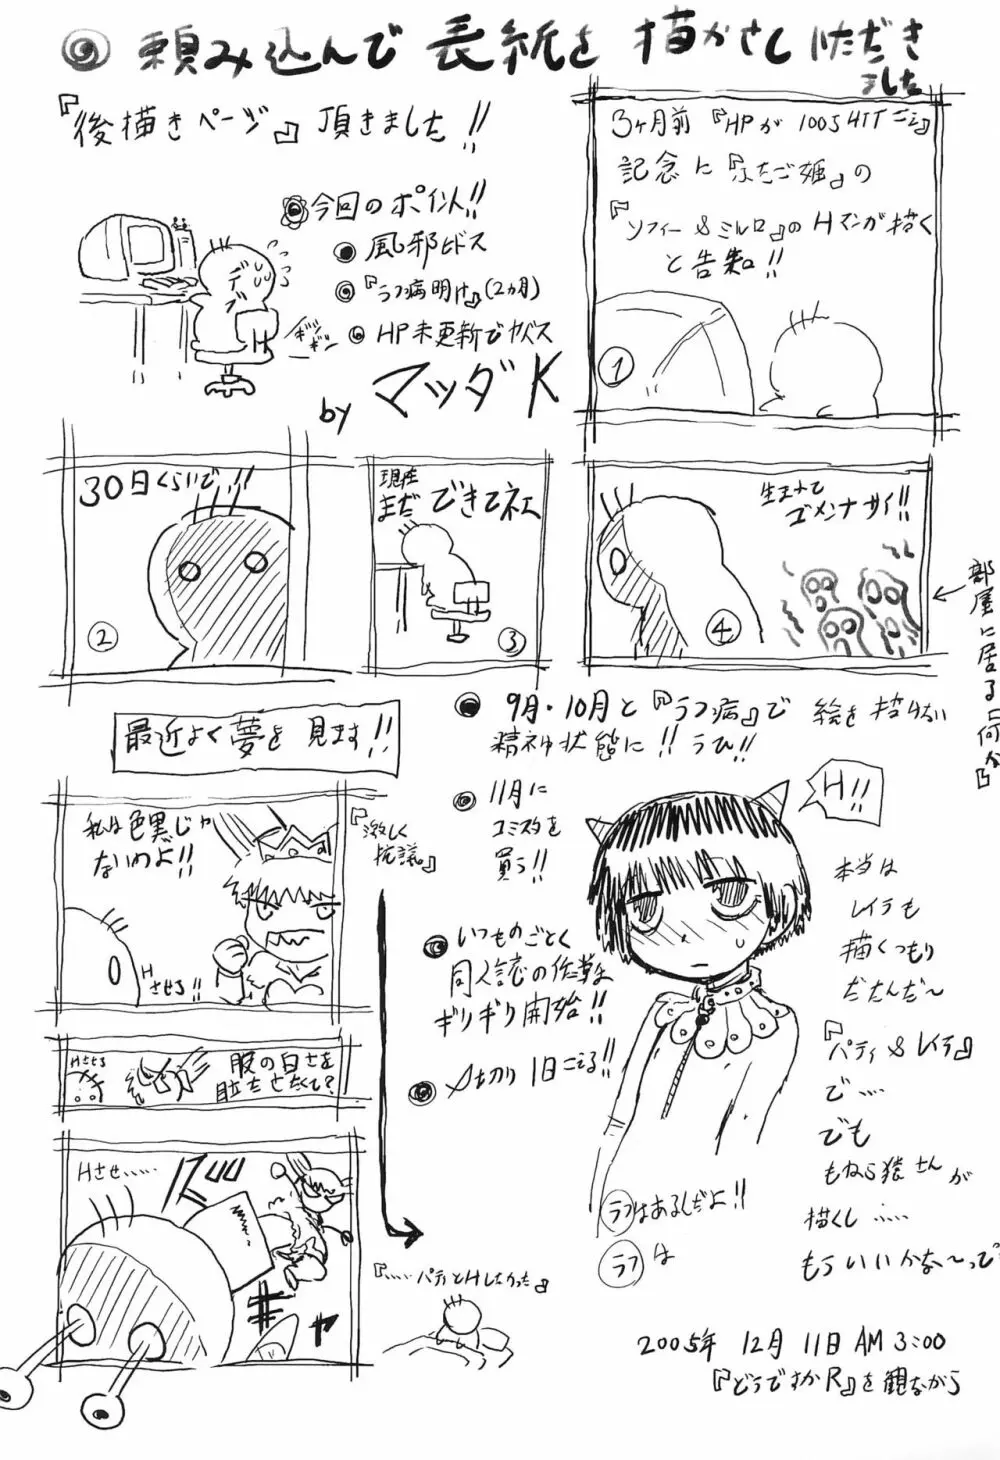 頼み込んで表紙を描かさしいただき
ました
『後描きページ』頂きました!!
今回のポイント!!
風邪ヒドス
『ラフ病明け』(2カ月)
HP未更新でヤバス
デブ
ギシッ
ギシ
by マツダK
3ヶ月前『HPが
記念に『ふたご姫』の
『ソフィー&ミルロ』のHマンガ描く
と告知!!
①
30日くらいで!!
②
現在
まだできてネェ
③
生まれて
ゴメンナサイ!!
④
部屋に居る『何か』
9月・10月と『ラフ病』で絵を描けない
精神状態に!!うひ!!
11月に
コミスタを
買う!!
いつものごとく
同人誌の作業を
ギリギリ開始!!
〆切り1日こえる!!
最近よく夢を見ます!!
私は色黒じゃ
ないわよ!!
H
させろ!!
『激しく
抗議』
Hさせろ
服の白さを
目立たせたくて?
Hさせ……
『……パティとHしたかった』
H!!
本当は
レイラも
描くつもり
だたんだ〜
『パティ&レイラ』
で……
でも
もねら猿さんが
描くし……
もういいかな〜って
ラフはあるしだよ!!
ラフは
2005年 12月 11日 AM 3:00
『どうですかR』を観ながら